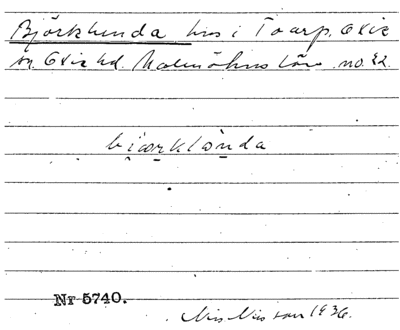 Björklunda hus i Toarp, Oxie
sn. Oxie hd. Malmöhus län no. 22.
biœrklònda
Nr 5740.
Nils Nilsson 1936.